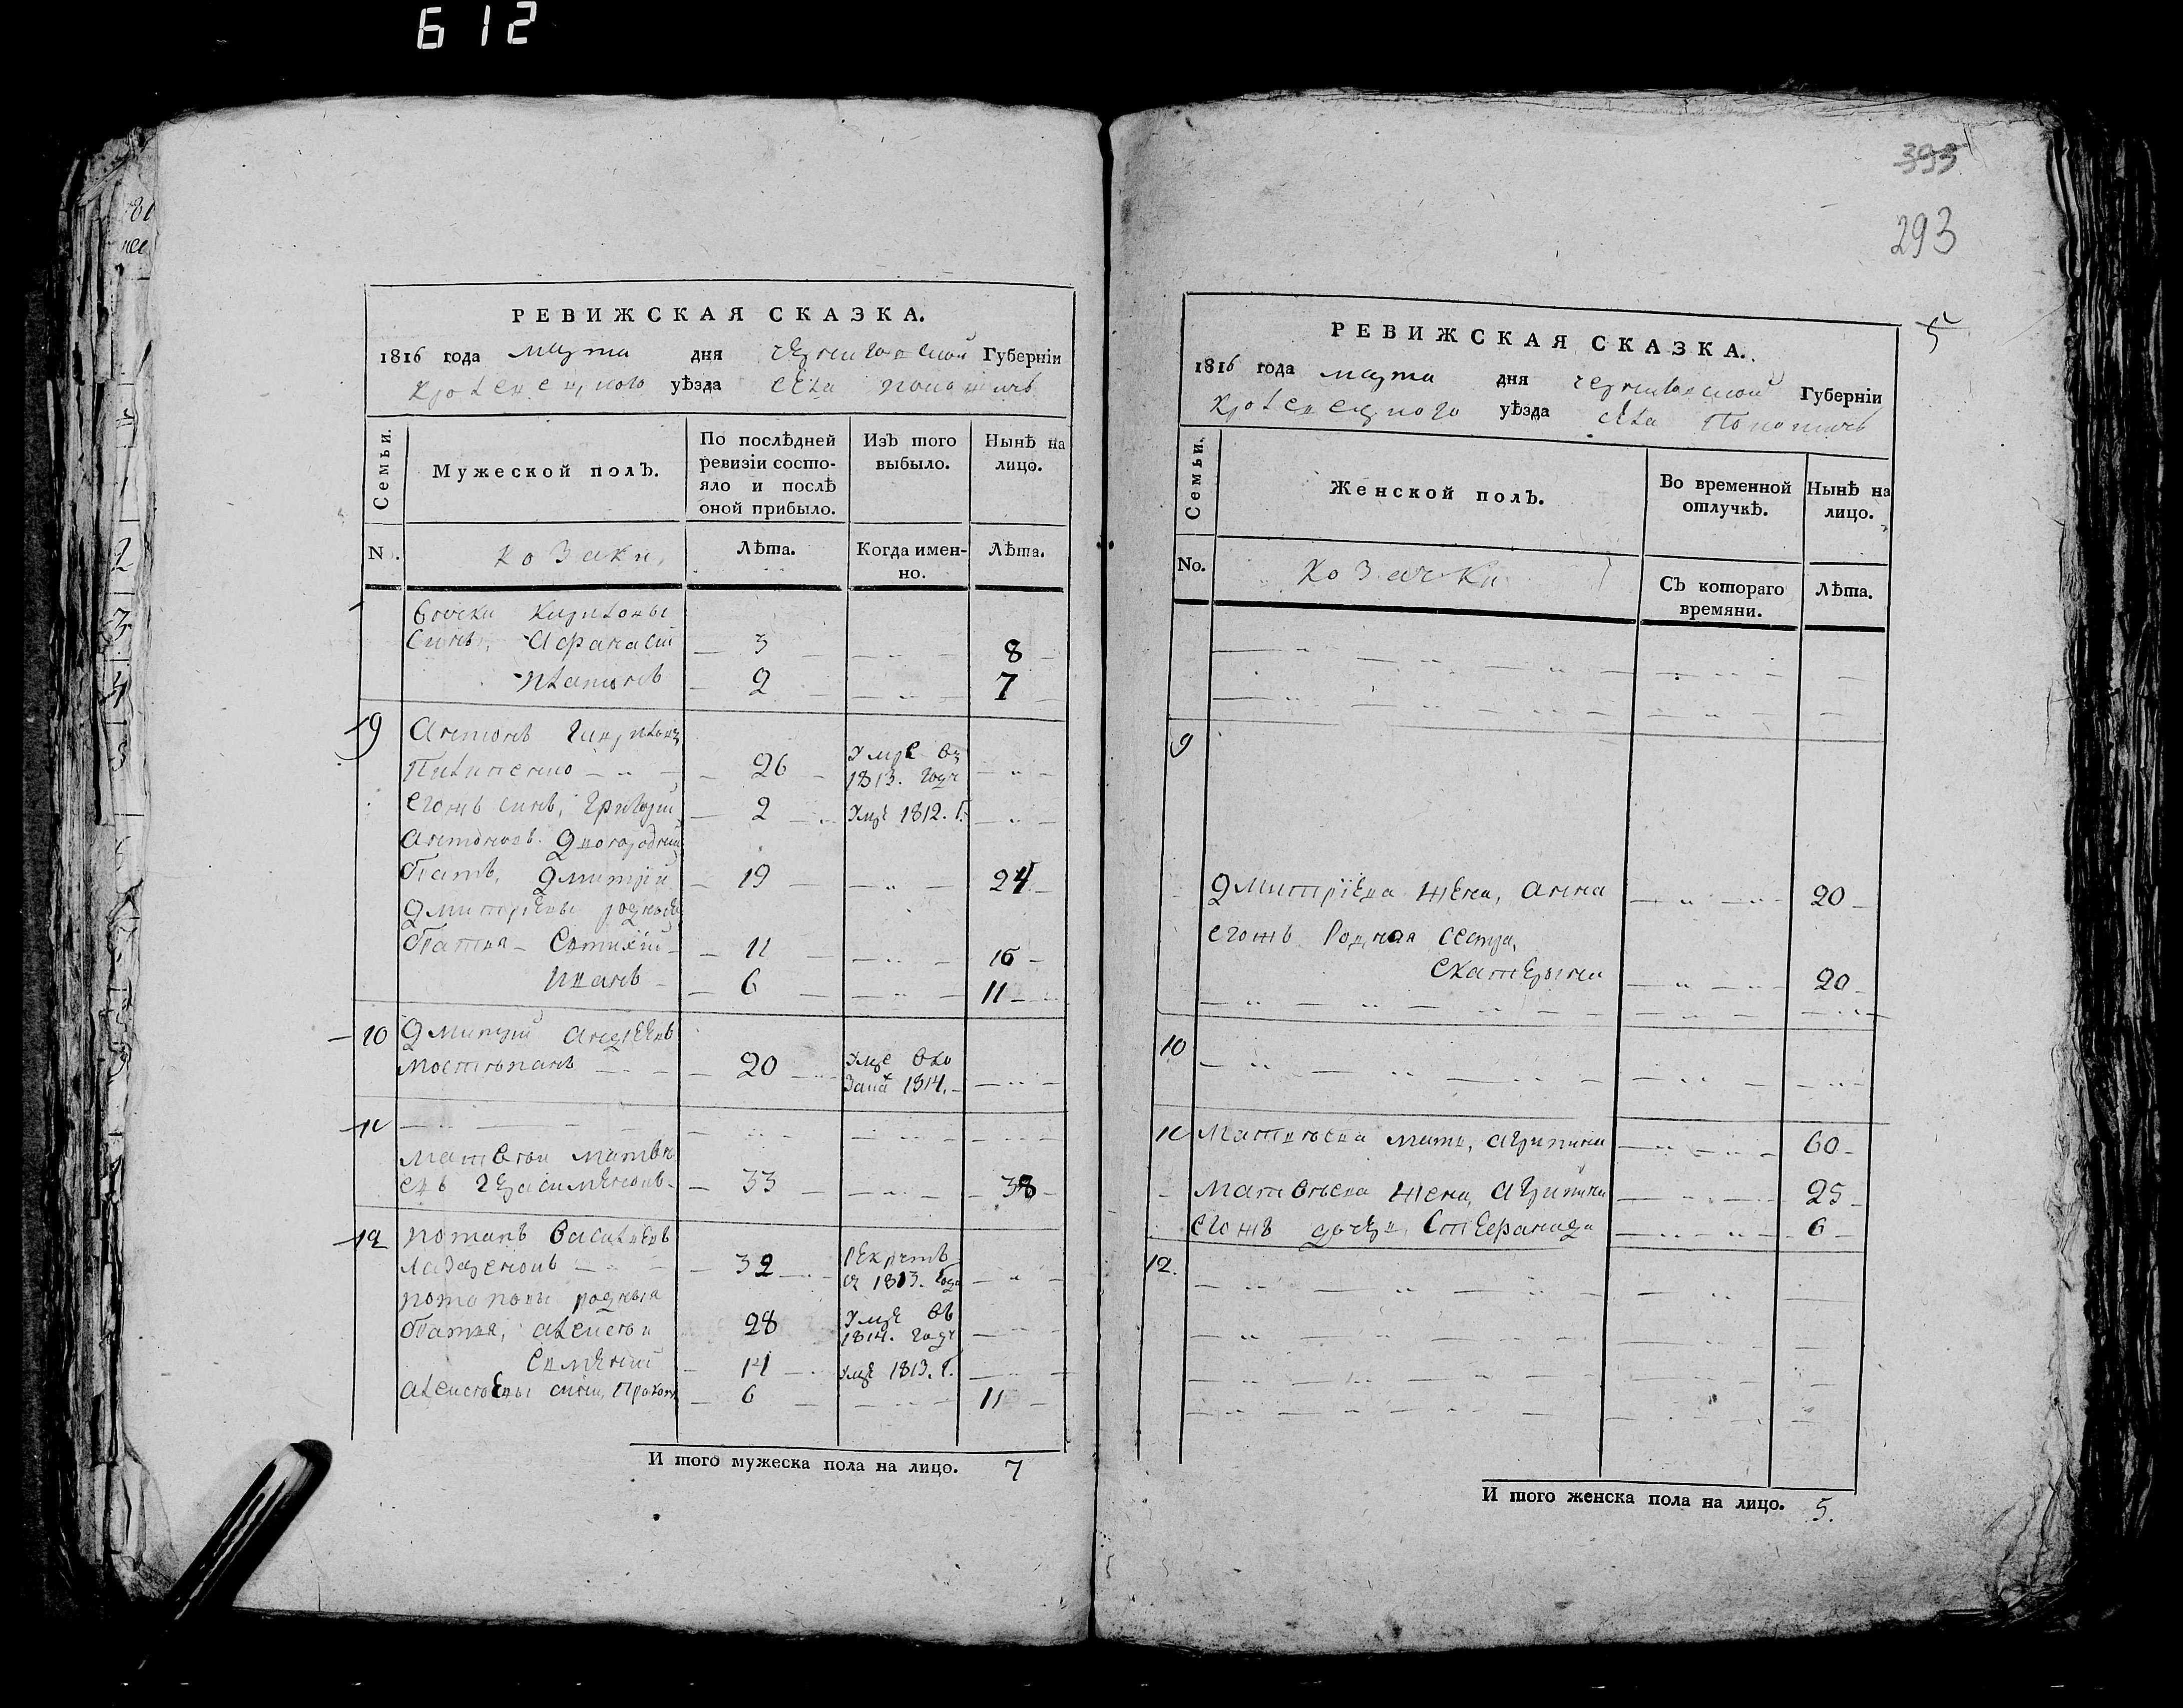 612
393
293
5
РЕВИЖСКАЯ СКАЗКА.
1816 года марта дня Черниговской Губерніи
Кролевецкого уѣзда села
Семьи.
Мужеской полъ.
По послѣдней ревизіи состояло и послѣ оной прибыло.
Изъ того выбыло.
Нынѣ на лицо.
N.
козаки,
Лѣта.
Когда именно.
Лѣта.
Кириловы
Сынъ, Афанасій 3 8
Платонъ 2 7
9 Антонъ
Пилипенко 26 Умре въ 1813. году
егожъ сынъ, Григорій 2 Умре 1812. г.
Антоновъ двоюродный
братъ, Дмитрій 19 24
Дмитріевы родные
братья Евтихій 11 16
Иванъ 6 11
10 Дмитрій Андреевъ
20 Умре 1814.
11
Матвей Матвеевъ
Герасименковъ 33 38
12 Потапъ Васильевъ
Лазаренковъ 32 Рекрутъ съ 1813. года
Потаповы родныя
братья, Алексей 28 Умре въ 1814. году
14 Умре 1813. г.
Алексеевы сынъ, Прокопъ 6 11
И того мужеска пола на лицо. 7
РЕВИЖСКАЯ СКАЗКА.
1816 года марта дня Черниговской Губерніи
Кролевецкого уѣзда села
Семьи.
Женской полъ.
Во временной отлучкѣ.
Нынѣ на лицо.
No.
козачки
Съ котораго времяни.
Лѣта.
9
Дмитріева жена, Анна 20
егожъ родная сестра,
Екатерина 20
10
11 мать, Агрипина 60
Матвеева жена, Агрипина 25
егожъ дочерь, Стефанида 6
12.
И того женска пола на лицо. 5.